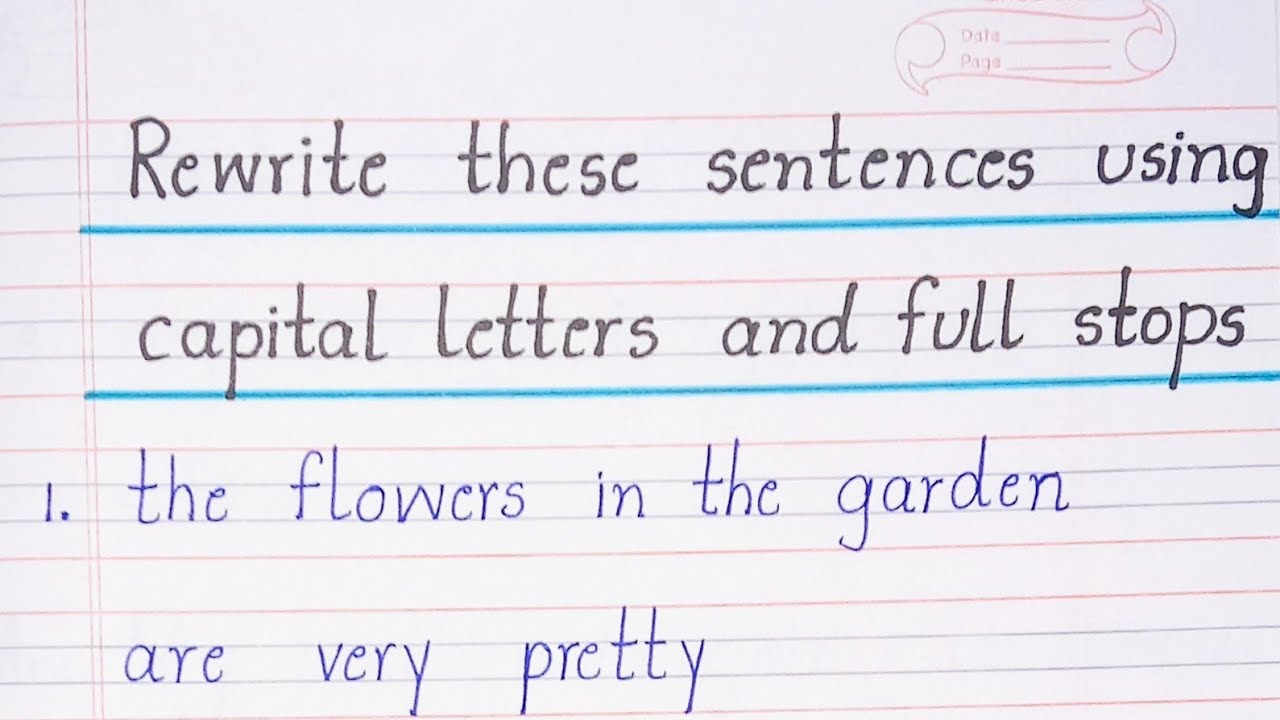 Date
Page
Rewrite these sentences using
capital letters and full stops
1. the flowers in the garden
are very pretty